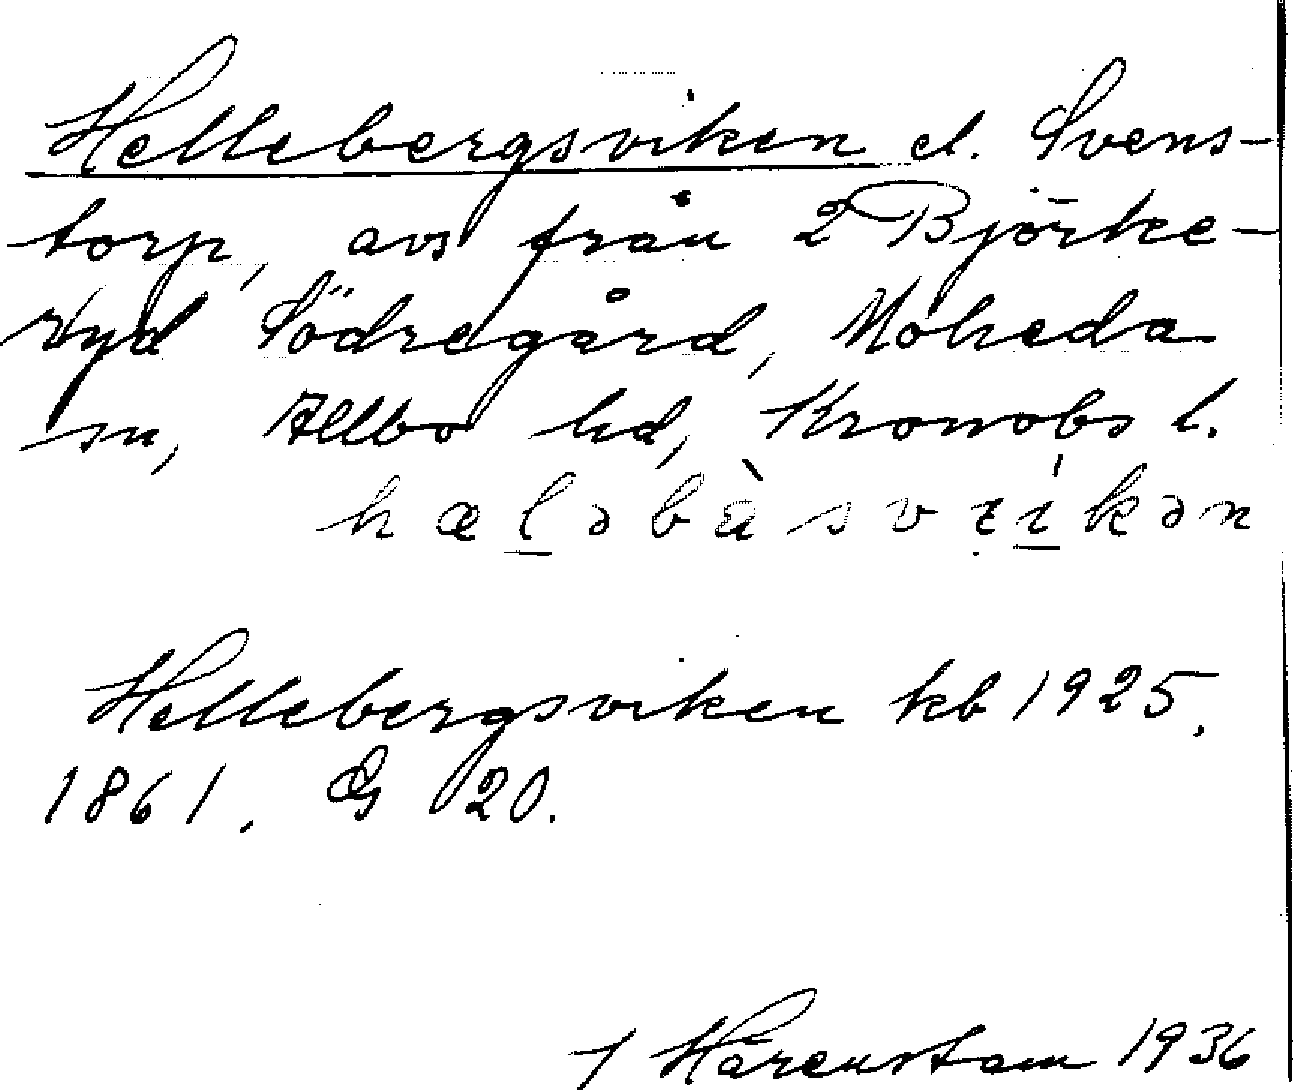 Hellebergsviken el. Svens-
torp, avs från 2 Björke-
ryd Södregård, Moheda
sn, Allbo hd, Kronobs l.
hæləbàsvıikən
Hellebergsviken kb 1925.
1861. G 20.
I Härenstam 1936